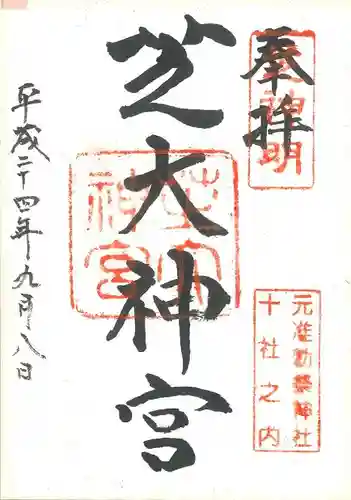 奉拝
芝神明
芝大神宮
芝大神宮
元准勅祭神社
十社之内
平成二十四年九月八日